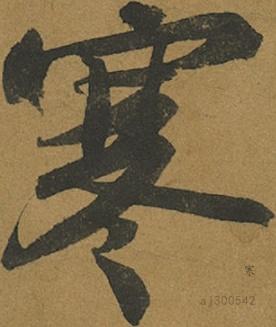 寒
寒
aj300542